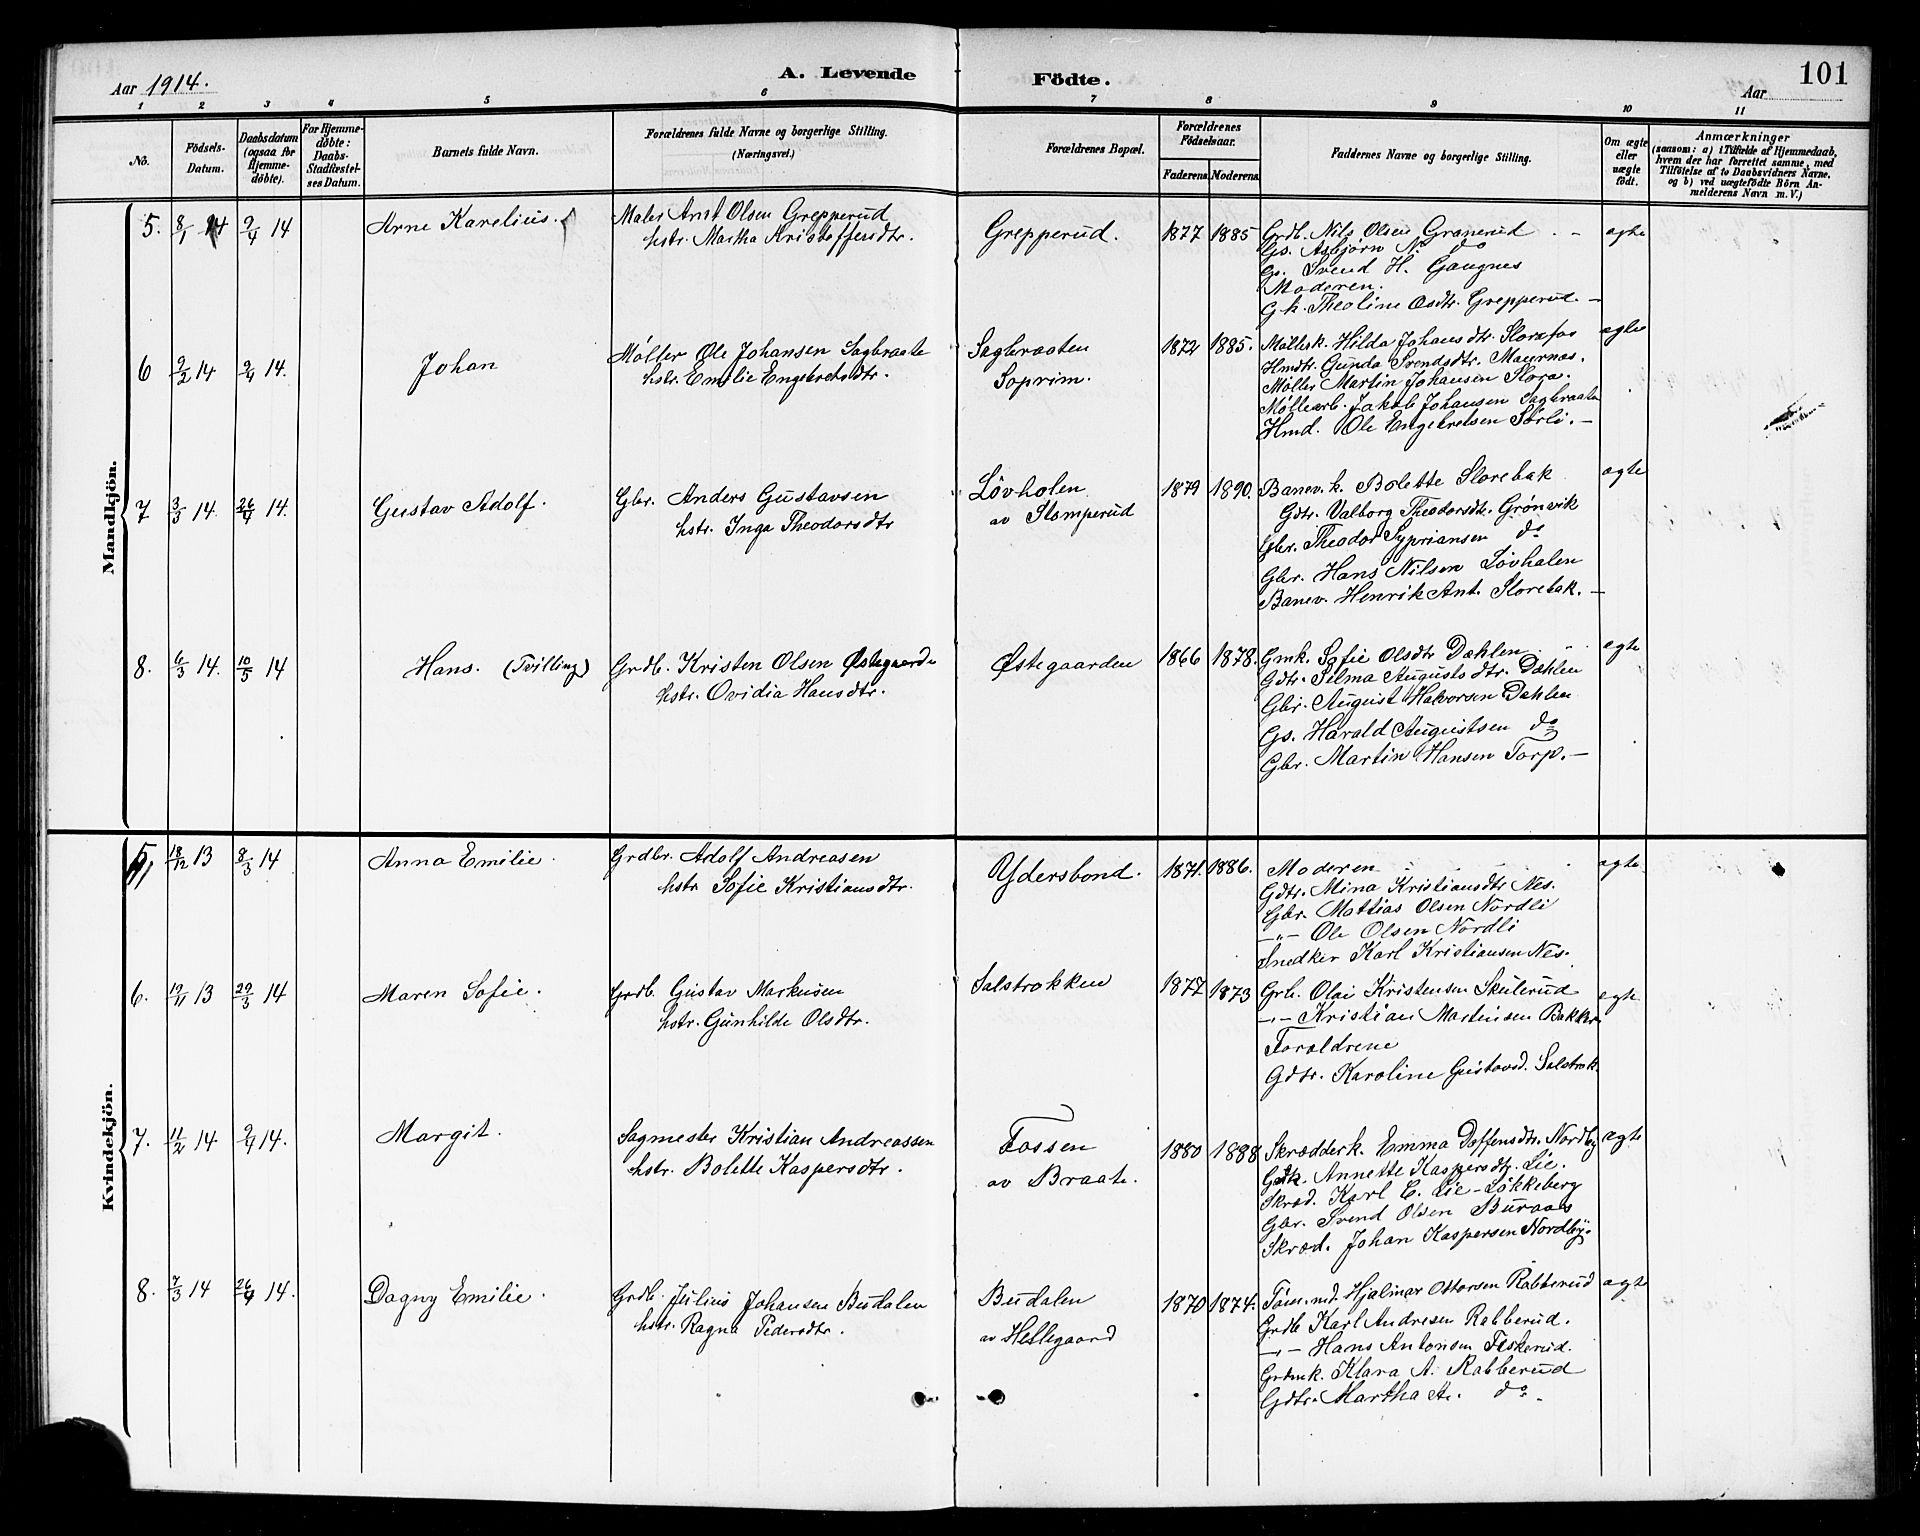 Aar 1914.
A. Levende Födte.
Aar
101
1 2 3 4 5 6 7 8 9 10 11
No.
Födsels-
Datum.
Daabsdatum
(ogsaa for
Hjemme-
döbte).
For Hjemme-
döbte:
Daabs-
Stadfæstel-
ses Datum.
Barnets fulde Navn.
Forældrenes fulde Navne og borgerlige Stilling.
(Næringsvei.)
Forældrenes Bopæl.
Forældrenes
Födselsaar.
Faderens. Moderens.
Faddernes Navne og borgerlige Stilling.
Om ægte
eller
uægte
födt.
Anmærkninger
(saasom: a) i Tilfælde af Hjemmedaab,
hvem der har forrettet samme, med
Tilföielse af to Daabsvidners Navne,
og b) ved uægtefödte Börn An-
melderens Navn m. V.)
Mandkjön.
5. 8/1 14 9/4 14
Arne Karelius.
Maler Ant Olsen Grepperud
hstr. Martha Kristoffersdtr.
Grepperud.
1877 1885
Grdb. Nils Olsen Granerud
Gs. Asbjørn N. do
Gs. Svend H. Gaugnes
Moderen.
Gk. Theoline Osdtr. Grepperud. —
ægte
6 9/2 14 9/4 14.
Johan
Møller Ole Johansen Sagbraate
hstr. Emilie Engebretsdtr.
Sagbraaten
Soprim.
1872 1885.
Møllesk. Hilda Johansdtr. Slorafos
Hmdtr. Gunda Svendsdtr. Maurnas.
Møller Martin Johansen Slora.
Møllearb. Jakob Johansen Sagbraaten
Hmd. Ole Engebretsen Sørli. —
ægte
7 3/3 14. 26/4 14.
Gustav Adolf.
Gbr. Anders Gustavsen
hstr. Inga Theodorsdtr
Løvholen
av Slomperud
1879 1890.
Banev. k. Bolette Slorebak
Gdtr. Valborg Theodorsdtr. Grønvik
Gbr. Theodor Sypriansen do
Gbr. Hans Nilsen Løvhalen
Banev. Henrik Ant. Slorebak. —
ægte
8. 6/3 14. 10/5 14
Hans. (Tvilling)
Grdb. Kristen Olsen Østegaarde
hstr. Ovidia Hansdtr.
Østegaarden
1866 1878.
Gmk. Sofie Olsdtr Dæhlen
Gdtr. Selma Augustsdtr. Dæhlen
Gbr. August Halvorsen Dæhlen
Gs. Harald Augustsen do
Gbr. Martin Hansen Torp. —
ægte
Kvindekjön.
5, 18/12 13 8/3 14
Anna Emilie.
Grdbr. Adolf Andreasen
hstr Sofie Kristiansdtr.
Ydersbond.
1871. 1886.
Moderen
Gdtr. Mina Kristiansdtr Nes.
Gbr. Mattias Olsen Nordli
—"— Ole Olsen Nordli
Snedker Karl Kristiansen Nes.
ægte.
6. 19/11 13 29/3 14
Maren Sofie.
Grdb. Gustav Markusen
hstr. Gunhilde Olsdtr.
Salstrokken
1877 1873
Grb. Olai Kristensen Skulerud
—"— Kristian Martinsen Bakker
Forældrene
Gdtr. Karoline Gustavsd. Salstrok.
ægte
7. 11/2 14 9/4 14.
Margit.
Sagmester Kristian Andreassen
hstr. Bolette Kaspersdtr.
Fossen
av Braate.
1880 1888
Skrædderk. Emma Deffensdtr. Nordby
Gdk. Annette Kaspersdtr. Lie.
Skræd. Karl C. Lie - Løkkeberg
Gbr. Svend Olsen Buraas
Skræd. Johan Kaspersen Nordby.
ægte
8. 7/3 14 26/4 14.
Dagny Emilie.
Grdb. Julius Johansen Budalen
hstr. Ragna Pedersdtr.
Budalen
av Hellegaard
1870 1874.
Tøm.md. Hjalmar Ottersen Rabberud
Grdb Karl Andresen Rabberud.
—"— Hans Antonsen Fiskerud.
Grdmk. Klara A. Rabberud
Gdtr. Martha A. do.
ægte